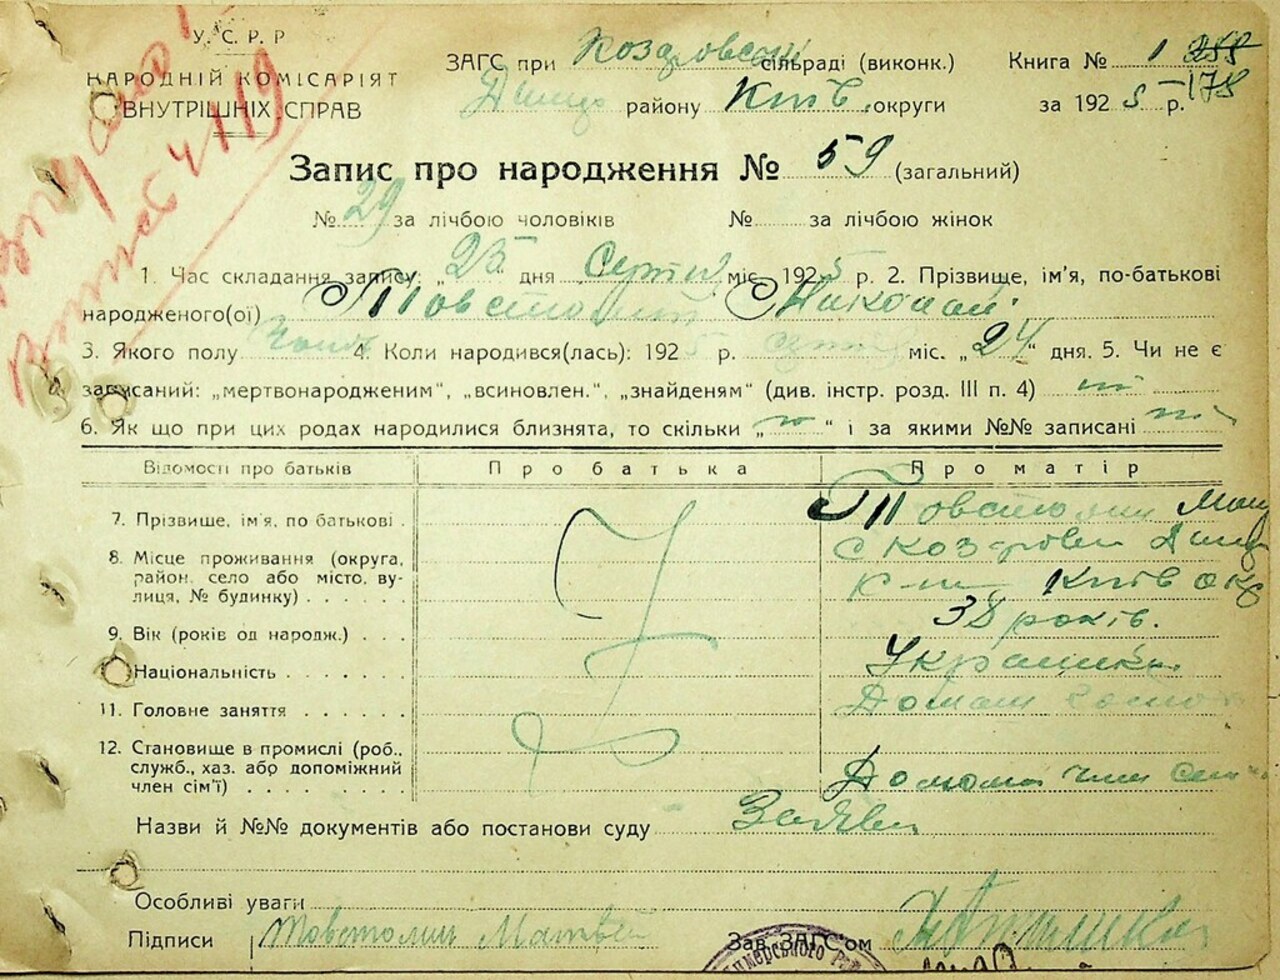 У. С. Р. Р
НАРОДНІЙ КОМІСАРІЯТ
ВНУТРІШНІХ СПРАВ
ЗАГС при сільраді (виконк.) Книга № 1 178
району Київ. округи за 1925 р.
Запис про народження № 59 (загальний)
№ 29 за лічбою чоловіків № за лічбою жінок
1. Час складання запису: „25 дня Серпня міс. 1925 р. 2. Прізвище, ім'я, по-батькові
народженого(ої) Товстолип Николай
3. Якого полу Чолов. 4. Коли народився(лась): 1925 р. серпня міс. „24" дня. 5. Чи не є
записаний: „мертвонародженим", „всиновлен.", „знайденям" (див. інстр. розд. III п. 4) ні
6. Як що при цих родах народилися близнята, то скільки „ні" і за якими №№ записані ні
Відомости про батьків Про батька Про матір
7. Прізвище, ім'я, по батькові . Товстолип
8. Місце проживання (округа, район, село або місто, вулиця, № будинку) . . . . Київ окр
9. Вік (років од народж.) . . . 38 років.
Національність . . . . . . Українка
11. Головне заняття . . . . . . Домаш
12. Становище в промислі (роб., служб., хаз. або допоміжний член сім'ї) . . . . Допом член сем
Назви й №№ документів або постанови суду Заява
Особливі уваги
Підписи Товстолип Матвій Зав. ЗАГС'ом